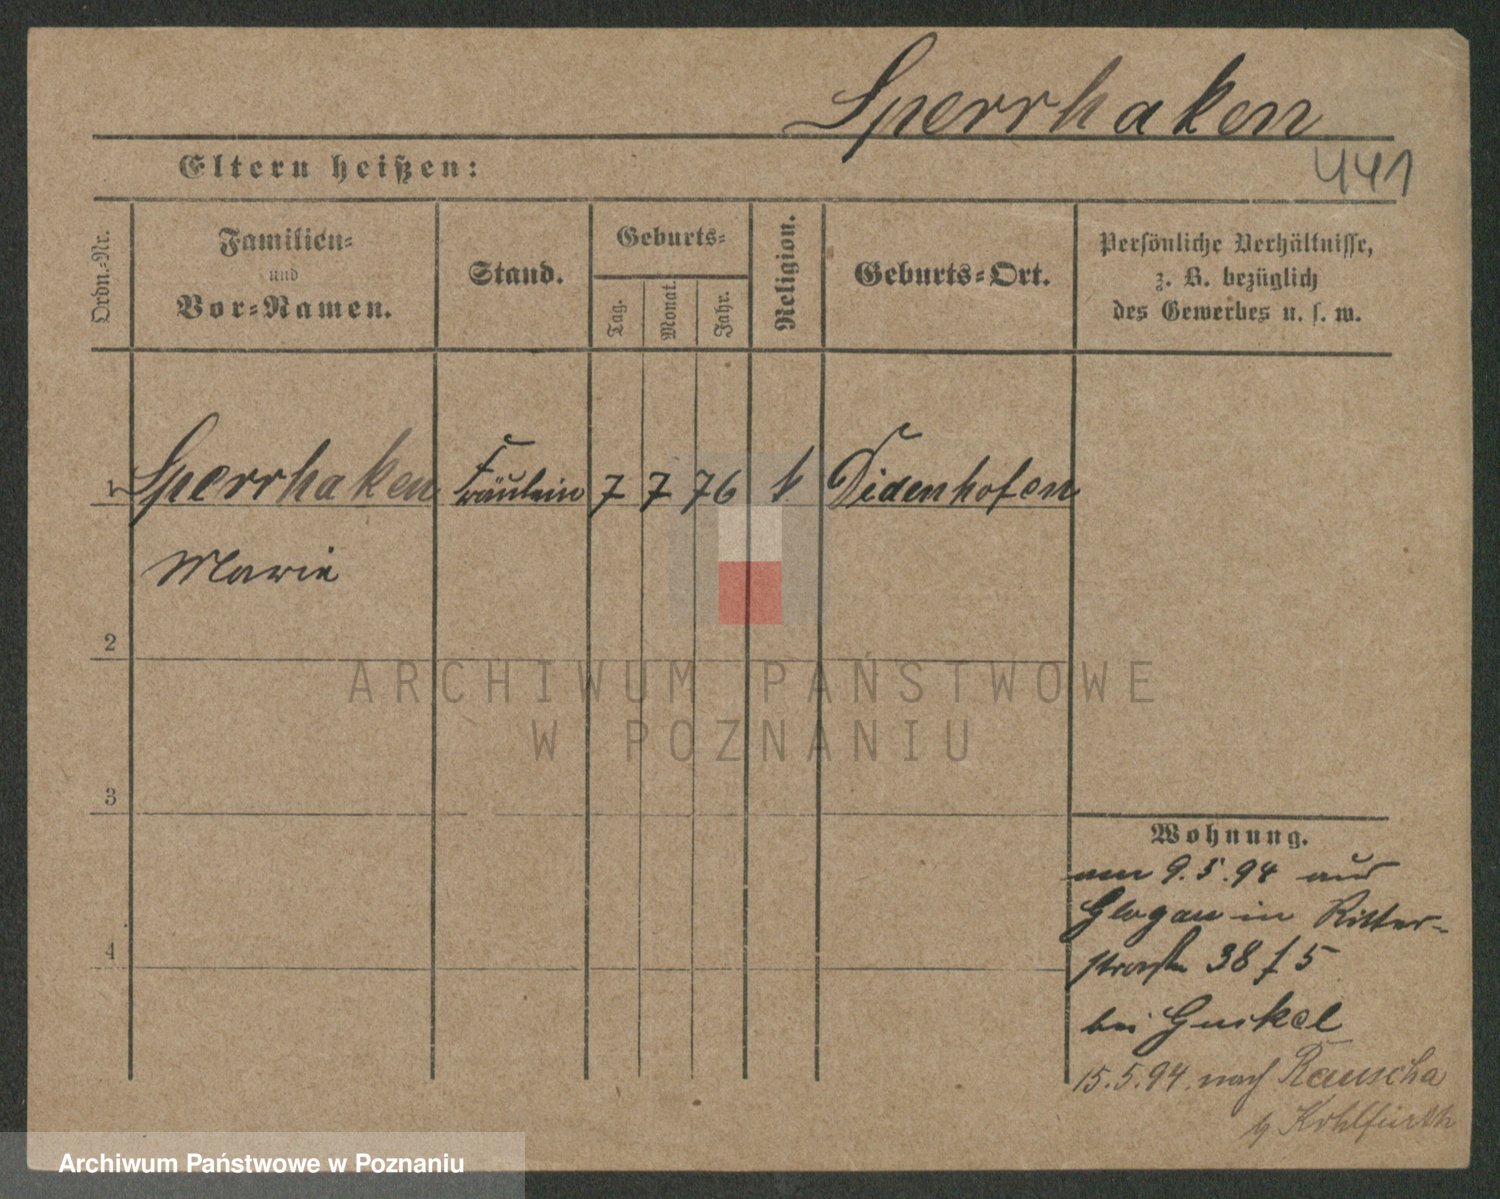 Sperrhaken
Eltern heißen:
441
Ordn.-Nr.
Familien-
und
Vor-Namen.
Stand.
Geburts-
Tag.
Monat.
Jahr.
Religion.
Geburts-Ort.
Persönliche Verhältnisse,
z. B. bezüglich
des Gewerbes u. s. w.
1 Sperrhaken Fräulein 7 7 76 k Didenhofen
Marie
2
3
4
Wohnung.
am 9.5.94 aus
Glogau in Ritter-
straße 38 f 5
bei Guskel
15.5.94. nach Rauscha
b/ Kohlfurth
ARCHIWUM PAŃSTWOWE
W POZNANIU
Archiwum Państwowe w Poznaniu